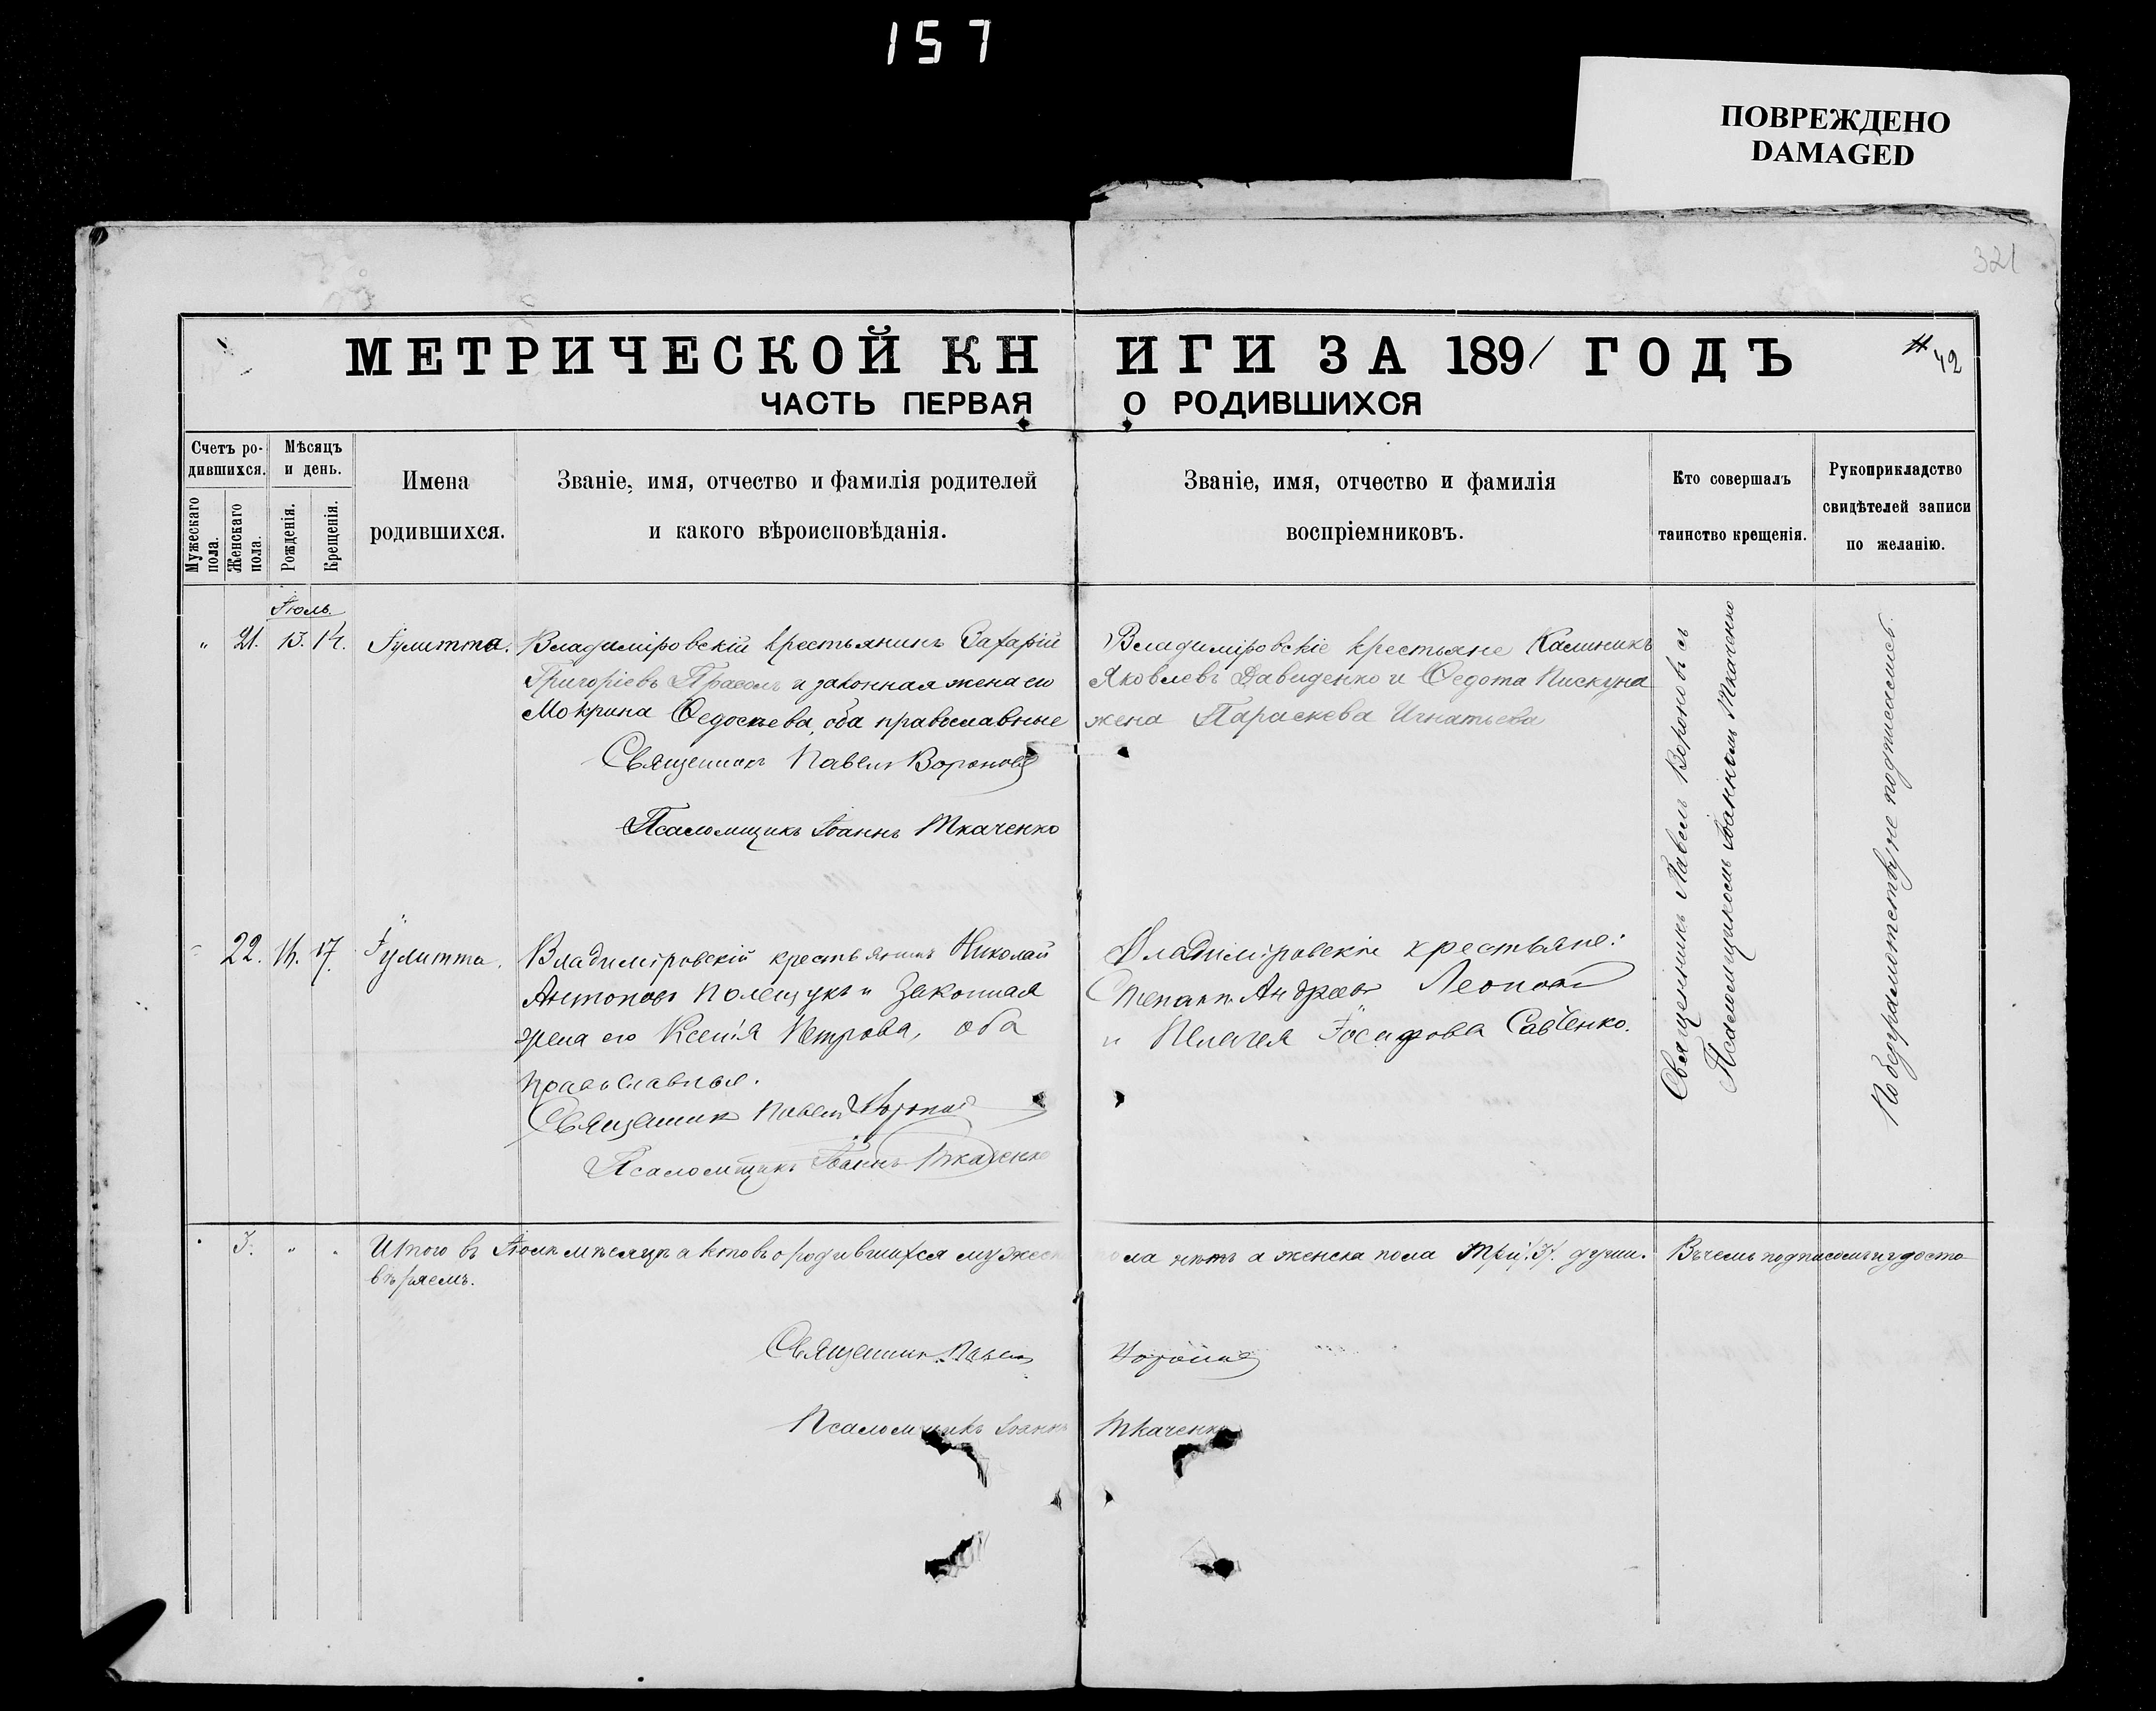 157
ПОВРЕЖДЕНО
DAMAGED
321
МЕТРИЧЕСКОЙ КНИГИ ЗА 1891 ГОДЪ
42
ЧАСТЬ ПЕРВАЯ О РОДИВШИХСЯ
Счетъ ро-
дившихся.
Мужескаго
пола.
Женскаго
пола.
Мѣсяцъ
и день.
Рожденія.
Крещенія.
Имена
родившихся.
Званіе, имя, отчество и фамилія родителей
и какого вѣроисповѣданія.
Званіе, имя, отчество и фамилія
воспріемниковъ.
Кто совершалъ
таинство крещенія.
Рукоприкладство
свидѣтелей записи
по желанію.
Іюль.
" 21. 13. 14. Іулитта.
Владиміровскій крестьянинъ Захарій
Григоріевъ Прасолъ и законная жена его
Мокрина Ѳедосіева, оба православные
Священникъ Павелъ Вороновъ
Псаломщикъ Іоаннъ Ткаченко
Владиміровскіе крестьяне Калиникъ
Яковлевъ Давиденко и Ѳедота Пискуна
жена Параскева Игнатьева
Священникъ Павелъ Вороновъ съ
Псаломщикомъ Іоанномъ Ткаченко
По безграмотству не подписались.
22. 14. 17. Іулитта.
Владиміровскій крестьянинъ Николай
Антоновъ Полещукъ и законная
жена его Ксенія Петрова, оба
православные.
Священникъ Павелъ Вороновъ
Псаломщикъ Іоаннъ Ткаченко
Владиміровскіе крестьяне:
Степанъ Андреевъ
и Пелагея Іосифова Савченко.
3. " " Итого въ Іюлѣ мѣсяцѣ а ктовъ о родившихся мужеск ола нѣтъ а женска пола три /3/. души. Въ чемъ подписомъ и удосто
вѣряемъ.
Священникъ Павелъ Вороновъ
Псаломщикъ Іоаннъ Ткаченко